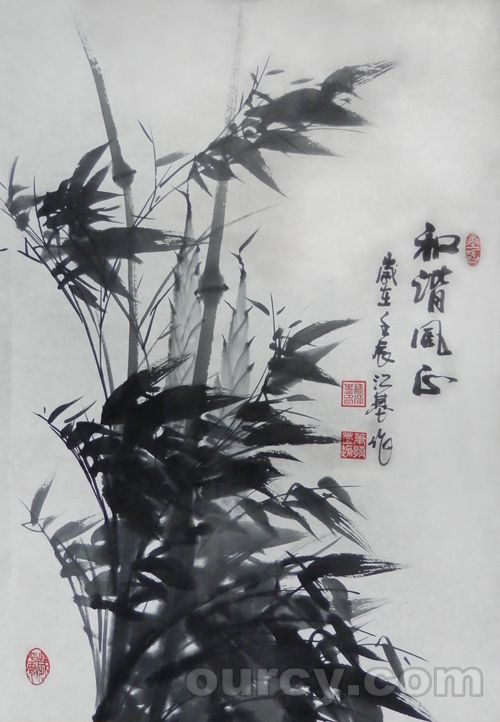 和谐風正
歲在壬辰江基作
ourcy.com